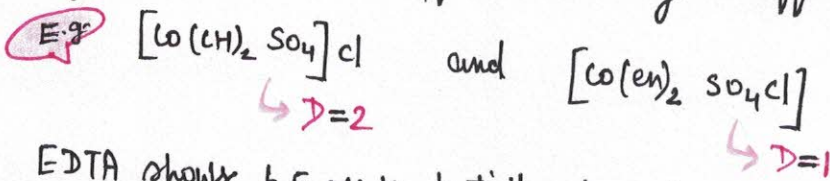 E.g. [Co(CH)₂ SO₄] Cl and [Co(en)₂ SO₄Cl]
↳ D=2
↳ D=1
EDTA shows